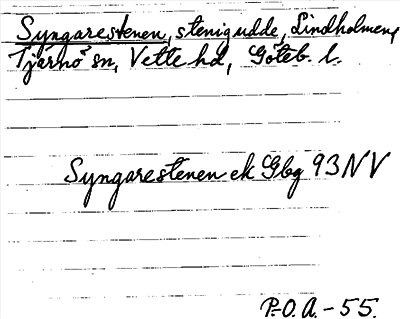 Syngarestenen, stenig udde, Lindholmen,
Tjärnö sn, Vette hd, Göteb. l.
Syngarestenen ek Gbg 93 NV
P-O. A. - 55.